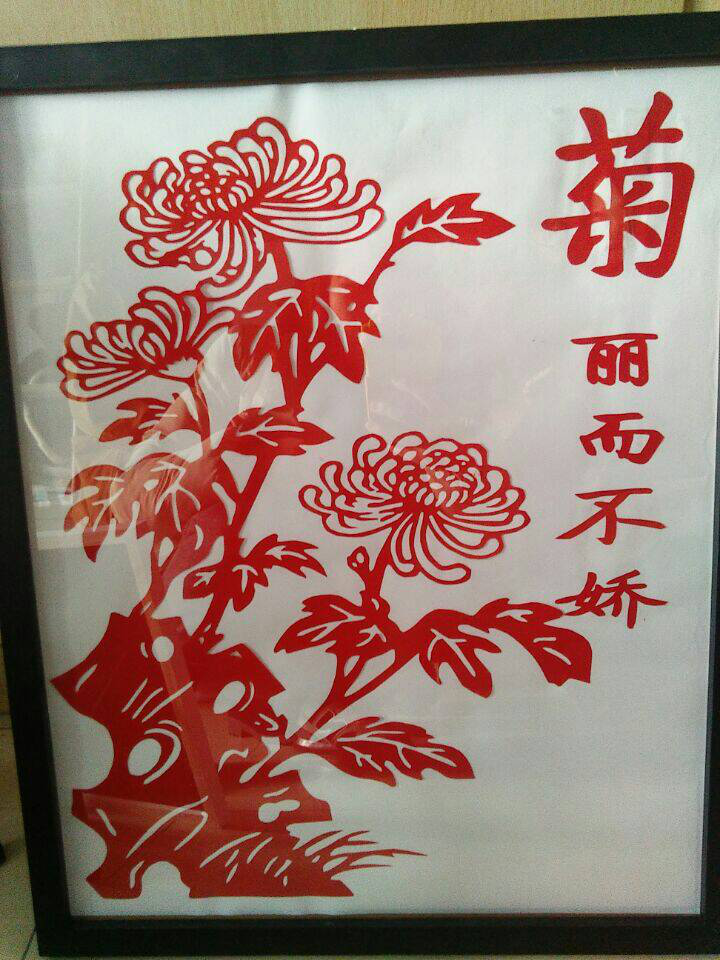 菊
丽而不娇